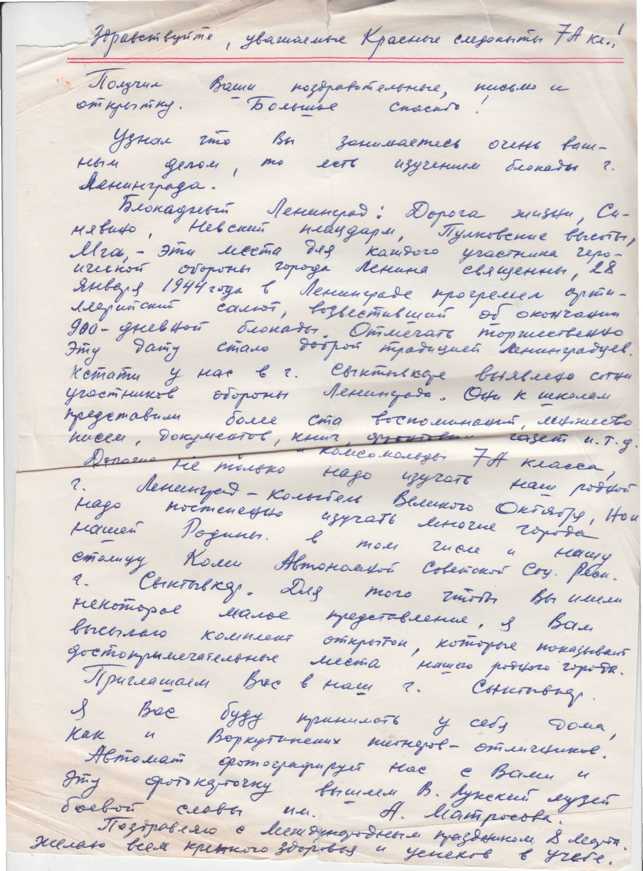 Здравствуйте, уважаемые Красные следопыты 7А кл.!
Получил Ваши поздравительные, письмо и
открытку. Большое спасибо!
Узнал что Вы занимаетесь очень важ-
ным делом, то есть изучением блокады г.
Ленинграда.
Блокадный Ленинград: Дорога жизни, Си-
нявино, Невский плацдарм, Пулковские высоты,
Мга, - эти места для каждого участника геро-
ической обороны города Ленина священны, 28
января 1944 года в Ленинграде прогремел арти-
ллерийский салют, возвестивший об окончании
900-дневной блокады. Отмечать торжественно
эту дату стало доброй традицией Ленинградцев.
Кстати у нас в г. Сыктывкаре выявлено сотни
участников обороны Ленинграда. Они к школам
представили более ста воспоминаний, множество
писем, документов, книг, фронтовых газет и.т.д.
Дорогие комсомольцы 7А класса,
не только надо изучать наш родной
г. Ленинград - колыбель Великого Октября, но и
надо постепенно изучать многие города
нашей Родины. в том числе и нашу
столицу Коми Автономной Советской Соц. Респ.
г. Сыктывкар. Для того чтобы Вы имели
некоторое малое представление, я Вам
высылаю комплект открыток, которые показывают
достопримечательные места нашего родного города.
Приглашаем Вас в наш г. Сыктывкар.
Я Вас буду принимать у себя дома,
как и Воркутинских пионеров-отличников.
Автомат фотографирует нас с Вами и
эту фотокарточку вышлем В. Лужский музей
боевой славы им. А. Матросова.
Поздравляю с Международным праздником 8 марта.
Желаю всем крепкого здоровья и успехов в учебе.